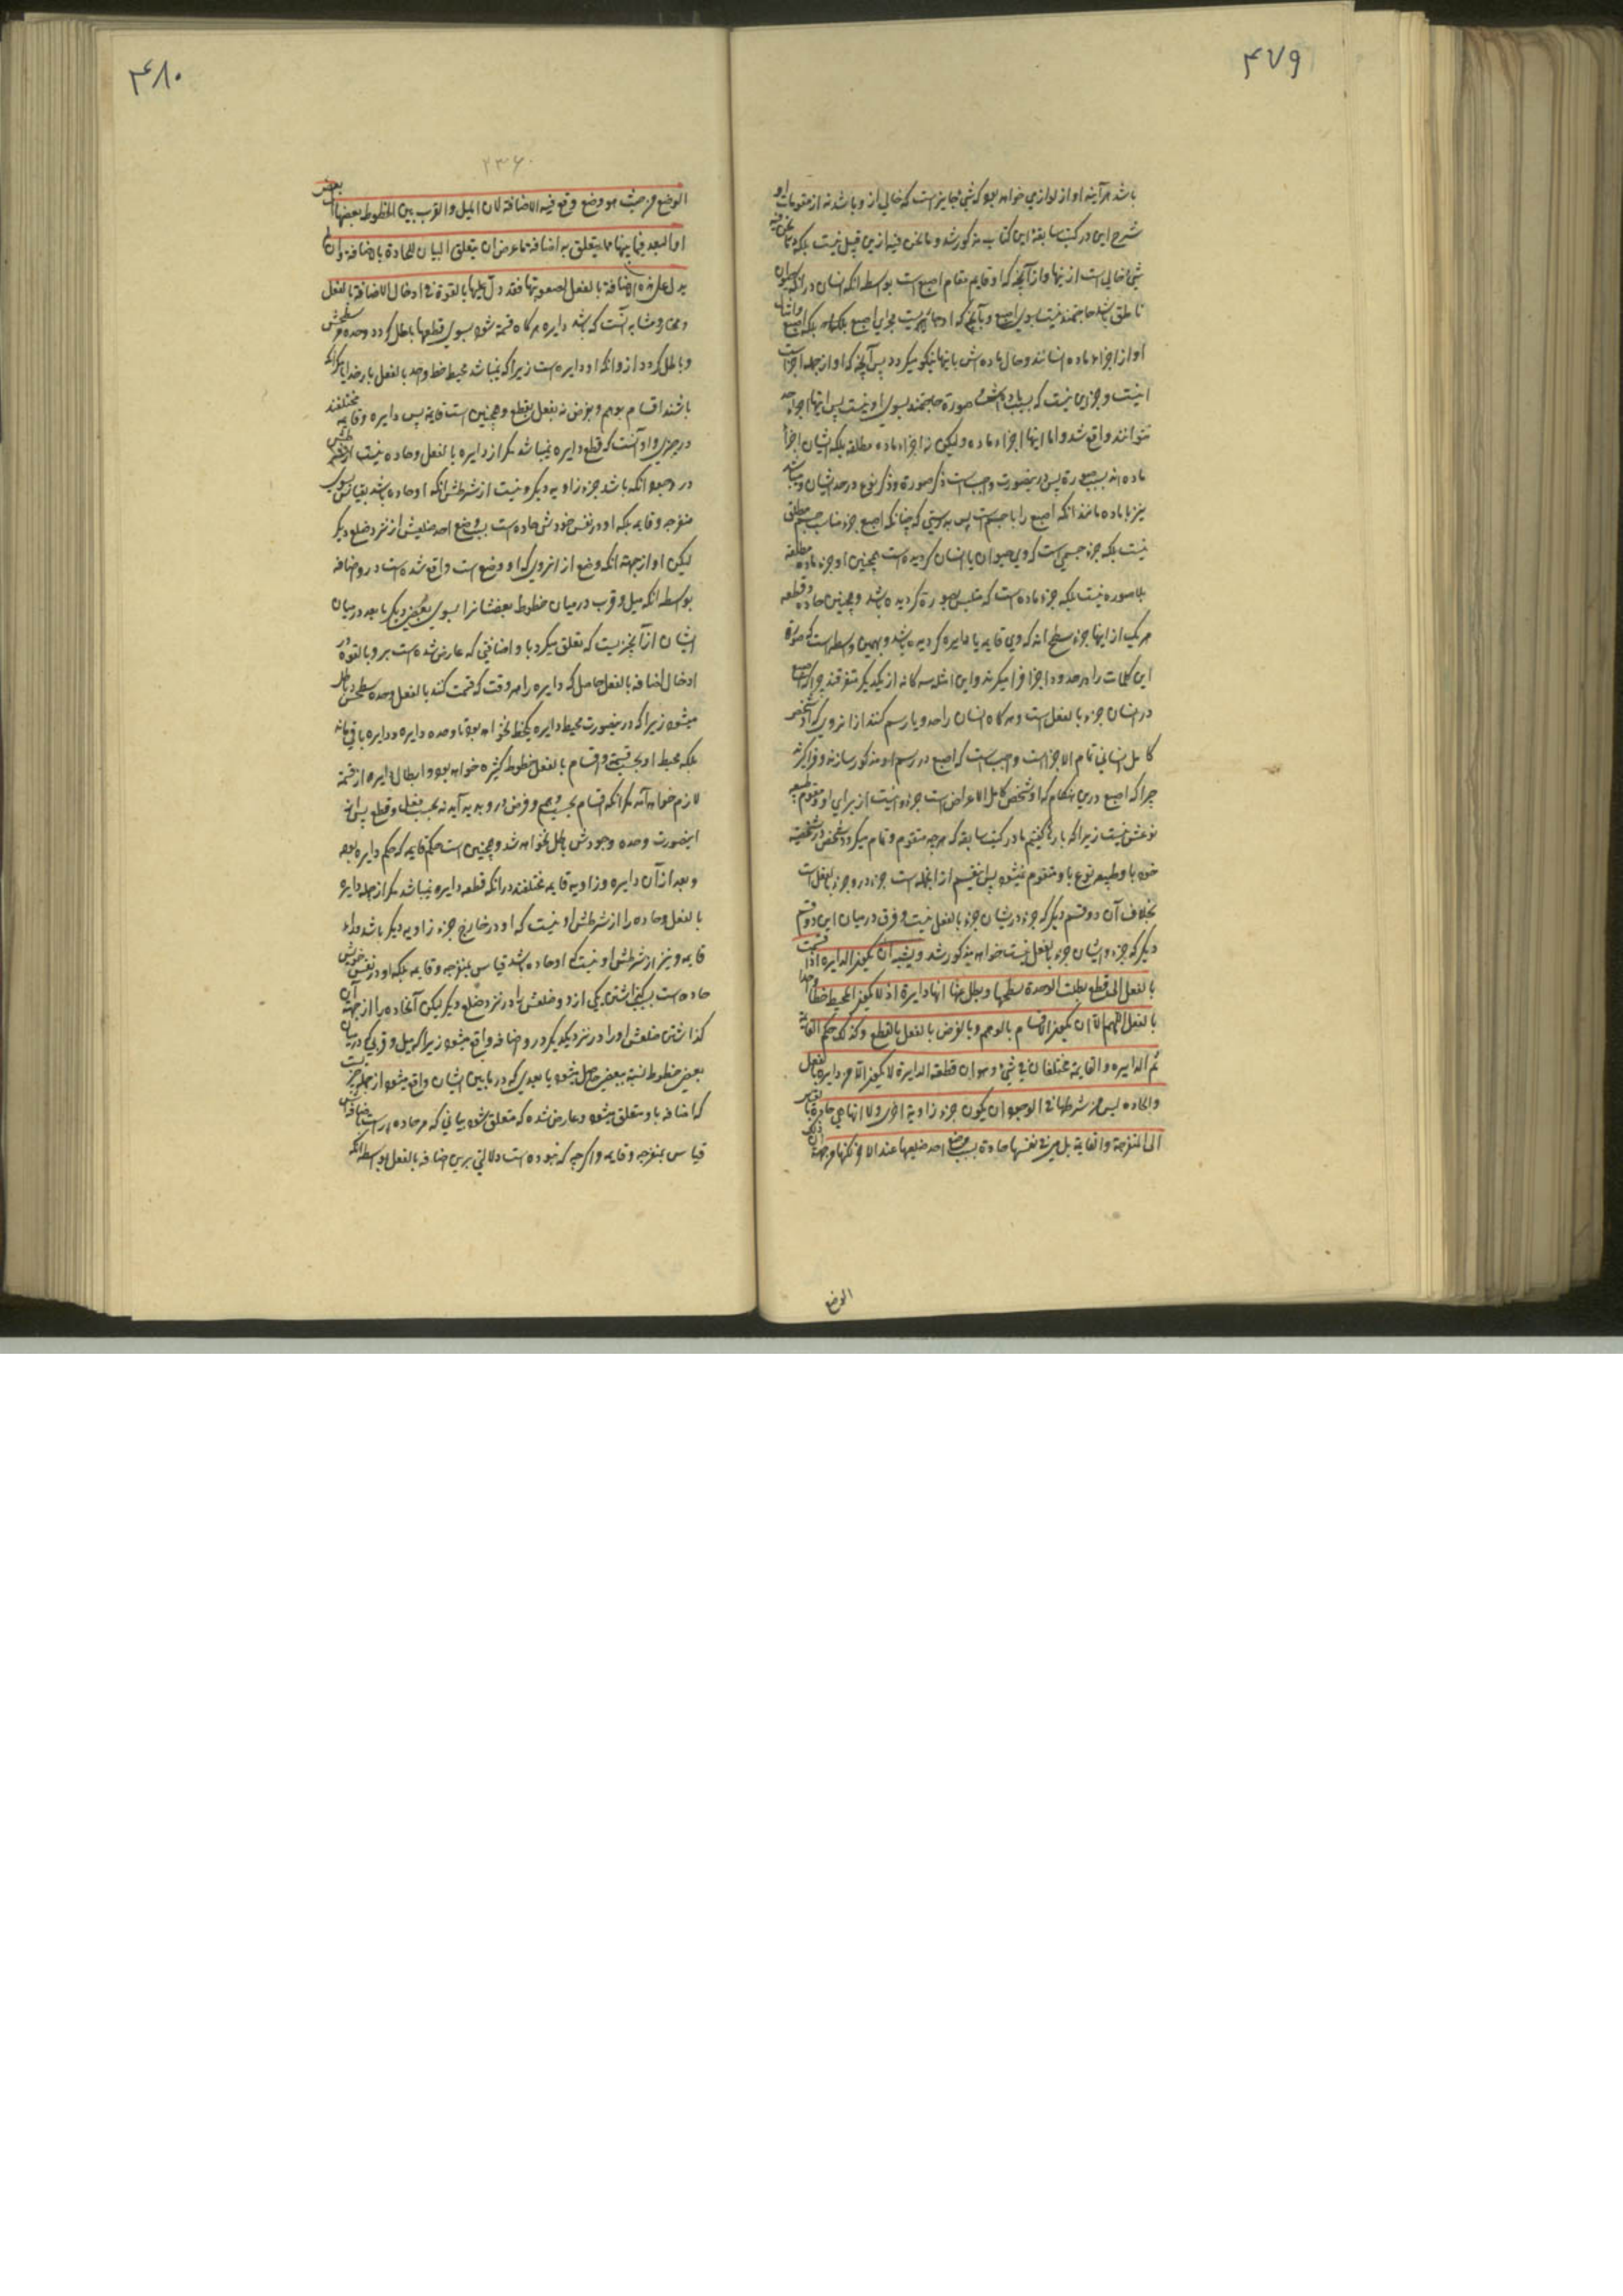 ۴۷۹
باشد هرآینه او از لوازمی خواهد بود که شیء جایز است که خالی از و باشد نه از مقومات او
شرح این در کتب سابقهٔ این کتاب مذکور شد و ما نحن فیه ازین قبیل نیست بلکه ما نحن فیه
شیء خالی است از اینها و از آنچه که او قایم مقام اصبع است بواسطه انکه انسان در انکه حیوان
ناطق باشد حاجتمند نیست بسوی اصبع و بآنچه که او جاری مجرای اصبع بلکه اصبع و امثال
او از اجزاء ماده انسانند و حال ماده‌ش باینها نیکو میگردد پس آنچه که او از جمله اجزا است
نیست و جزئی نیست که بسبب صورة حاجتمند بسوی او نیست پس اینها اجزاء حد
نتوانند واقع شد و اما اینها اجزاء ماده و لیکن نه اجزاء ماده مطلقه بلکه ایشان اجزا
ماده‌اند بسبب صورة پس درینصورت واجب است ذکر صورة و ذکر نوع در حد ایشان و باشد
نیز با ماده مانند انکه اصبع را با جسم است پس بدرستی که چنانکه اصبع جزء مناسب جسم مطلق
نیست بلکه جزء جسمی است که وی حیوان یا انسان گردیده است همچنین او جزء ماده مطلقه
بلا صوره نیست بلکه جزء ماده است که متلبس بصورة گردیده باشد و همچنین حاده و قطعه
هر یک از اینها جزء سطح اند که وی قایمه یا دایره گردیده باشد و بهمین واسطه است که صورة
این کلمات را در حدود اجزا فرا میگیرند و این امثله سه گانه از یکدیگر متفرقند چرا که اصبع
در انسان جزء بالفعل است و هرگاه انسان را حد و یا رسم کنند از انروی که او شخص
کامل انسانی تمام الاجزا است واجب است که اصبع در رسم او مذکور سازند و فرا گیرند
چرا که اصبع درین هنگام که او شخص کامل الاعراض است جزء و نیست از برای او و مقوم طبیعه
نوعش نیست زیرا که بارها گفتیم ما در کتب سابقه که هر چه متقوم و تمام میگردد شخص در شخصیت
خود باو طبیعه نوع باو متقوم نمیشود پس اینقسم از انجمله است جزء درو جزء بالفعل است
بخلاف آن دو قسم دیگر که جزء در ایشان جزء بالفعل نیست و فرق درمیان این دو قسم
دیگر که جزء در ایشان جزء بالفعل نیست خواهد مذکور شد و یشبه ان یکون الدایره اذا قسمت
بالفعل الی قطع بطلت الوحدة سطحها و بطل عنها انها دایرة اذ لا یکون المحیط خطا واحدا
بالفعل اللهم الا ان یکون الاقسام بالوهم و بالفرض لا بالفعل بالقطع و کذلک حکم القایمة
ثم الدایره و القایمة مختلفان فی شیء و هو ان قطعة الدایرة لا یکون الا من دایره بالفعل
و الحاده لیس من شرطها فی الوجود ان یکون جزء زاویة اخری و لا انها هی حادة بالقیاس
الی المنفرجة و القایمة بل هی فی نفسها حادة بسبب وضع احد ضلعیها عند الاخر لکنها من جهة ان ذلک
الوضع
۴۸۰
۲۳۶۰
الوضع من حیث هو وضع وقع فیه الاضافة لان المیل و القرب بین الخطوط بعضها الی بعض
او البعد فیما بینها مما یتعلق به اضافة ما عرض ان یتعلق البیان للحادة بالاضافة و ان لم
یدل علی هذه الاضافة بالفعل لصعوبتها فقد دل علیها بالقوة فی ادخال الاضافة بالفعل
و بمشابه آنست که باشد دایره هرگاه قسمة شود بسوی قطعها باطل گردد وحده سطحش
و باطل گردد ازو انکه او دایره است زیرا که نمیباشد محیط خط واحد بالفعل بار خدایا مگر انکه
باشند اقسام بوهم و بفرض نه بفعل بقطع و همچنین است قایمه پس دایره و قایمه مختلفند
در چیزی و او آنست که قطعه دایره نمیباشد مگر از دایره بالفعل و حاده نیست از شرطش
در وجود انکه باشد جزء زاویه دیگر و نیست از شرطش انکه او حاده باشد بقیاس بسوی
منفرجه و قایمه بلکه او در نفس خودش حاده است بسبب وضع احد ضلعیش از نزد ضلع دیگر
لیکن او از جهة انکه وضع از انروی که او وضع است واقع شده است درو اضافه
بواسطه انکه میل و قرب درمیان خطوط بعضشانرا بسوی بعضی دیگر یا بعد درمیان
ایشان از آنچیزیست که تعلق میگرد باو اضافتی که عارض شده است برو بالقوه در
ادخال اضافه بالفعل حاصل که دایره را هر وقت که قسمت کنند بالفعل وحده سطحش باطل
میشود زیرا که درینصورت محیط دایره یکخط نخواهد بود تا وحده دایره و دایره باقی ماند
بلکه محیط او بحسب قسمة و اقسام بالفعل خطوط کثیره خواهد بود و ابطال دایره از قسمة
لازم خواهد آمد مگر انکه اقسام بحسب وهم و فرض درو پدید آید نه بحسب فعل و قطع پس در
اینصورت وحده وجودش باطل نخواهد شد و همچنین است حکم قایمه که حکم دایره بود
و بعد از آن دایره و زاویه قایمه مختلفند در انکه قطعه دایره نمیباشد مگر از جمله دایره
بالفعل و حاده را از شرطش او نیست که او در خارج جزء زاویه دیگر باشد مانند
قایمه و نیز از شرطش او نیست که او حاده باشد قیاس بمنفرجه و قایمه بلکه او در نفس خویش
حاده است بسبب گذاشتن یکی از دو ضلعش را در نزد ضلع دیگر لیکن آنحاده را از جهة آن
گذاشتن ضلعش او را در نزد یکدیگر درو اضافه واقع میشود زیرا که میل و قربی که درمیان
بعض خطوط نسبة ببعض حاصل میشود یا بعدی که در مابین ایشان واقع میشود از جمله چیزیست
که اضافه باو متعلق میشود و عارض شده که متعلق شود بیانی که مر حاده راست باضافه
قیاس بمنفرجه و قایمه و اگرچه که نبوده است دلالتی برین اضافه بالفعل بواسطه انکه